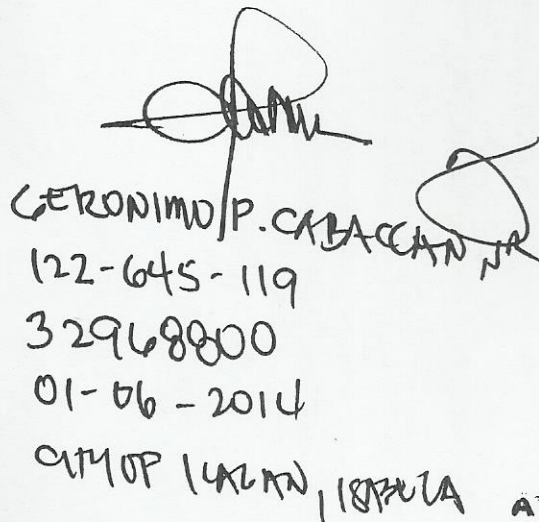 GERONIMO P. CABACCAN, JR
122-645-119
32968800
01-06-2014
CITY OF ILAGAN, ISABELA